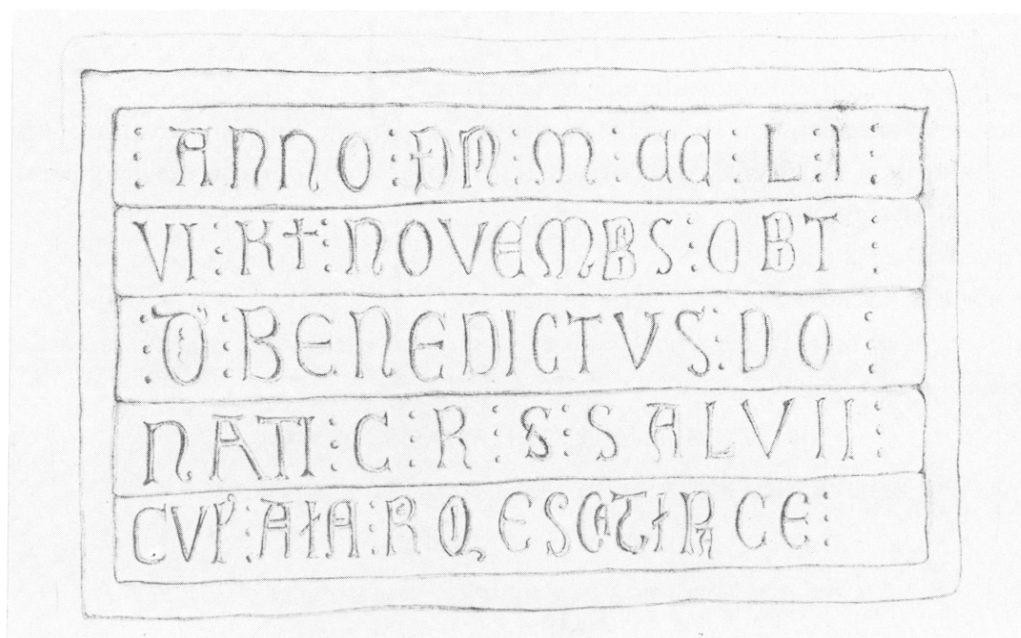 : ANNO : DNI : M : CC : L : I :
VI : KL : NOVEMBS : OBT :
: D : BENEDICTVS : DO :
NATI : C : R : S : SALVII :
CVI' : AIA : RQESCAT IN PACE :